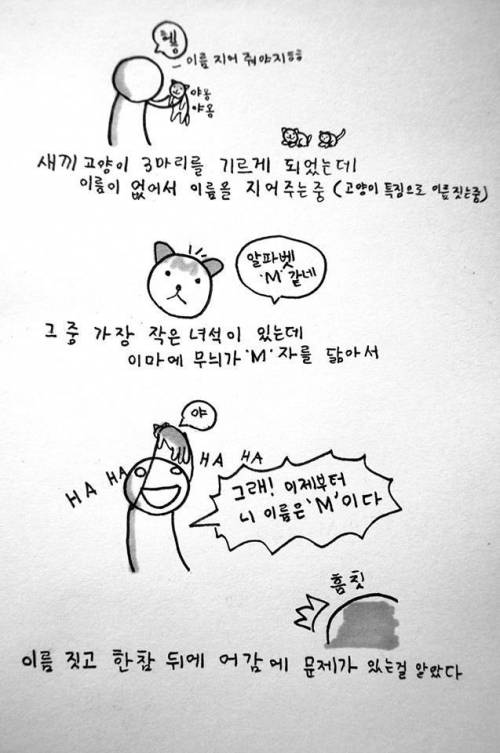 헬릉
이름 지어 줘야지 등등
야옹
야옹
새끼 고양이 3마리를 기르게 되었는데
이름이 없어서 이름을 지어주는중 (고양이 특징으로 이름짓는중)
알파벳
'M' 같네
그 중 가장 작은 녀석이 있는데
이마에 무늬가 'M' 자를 닮아서
야
HA HA HA HA
그래! 이제부터
니 이름은 'M'이다
흠칫
이름 짓고 한참 뒤에 어감에 문제가 있는걸 알았다